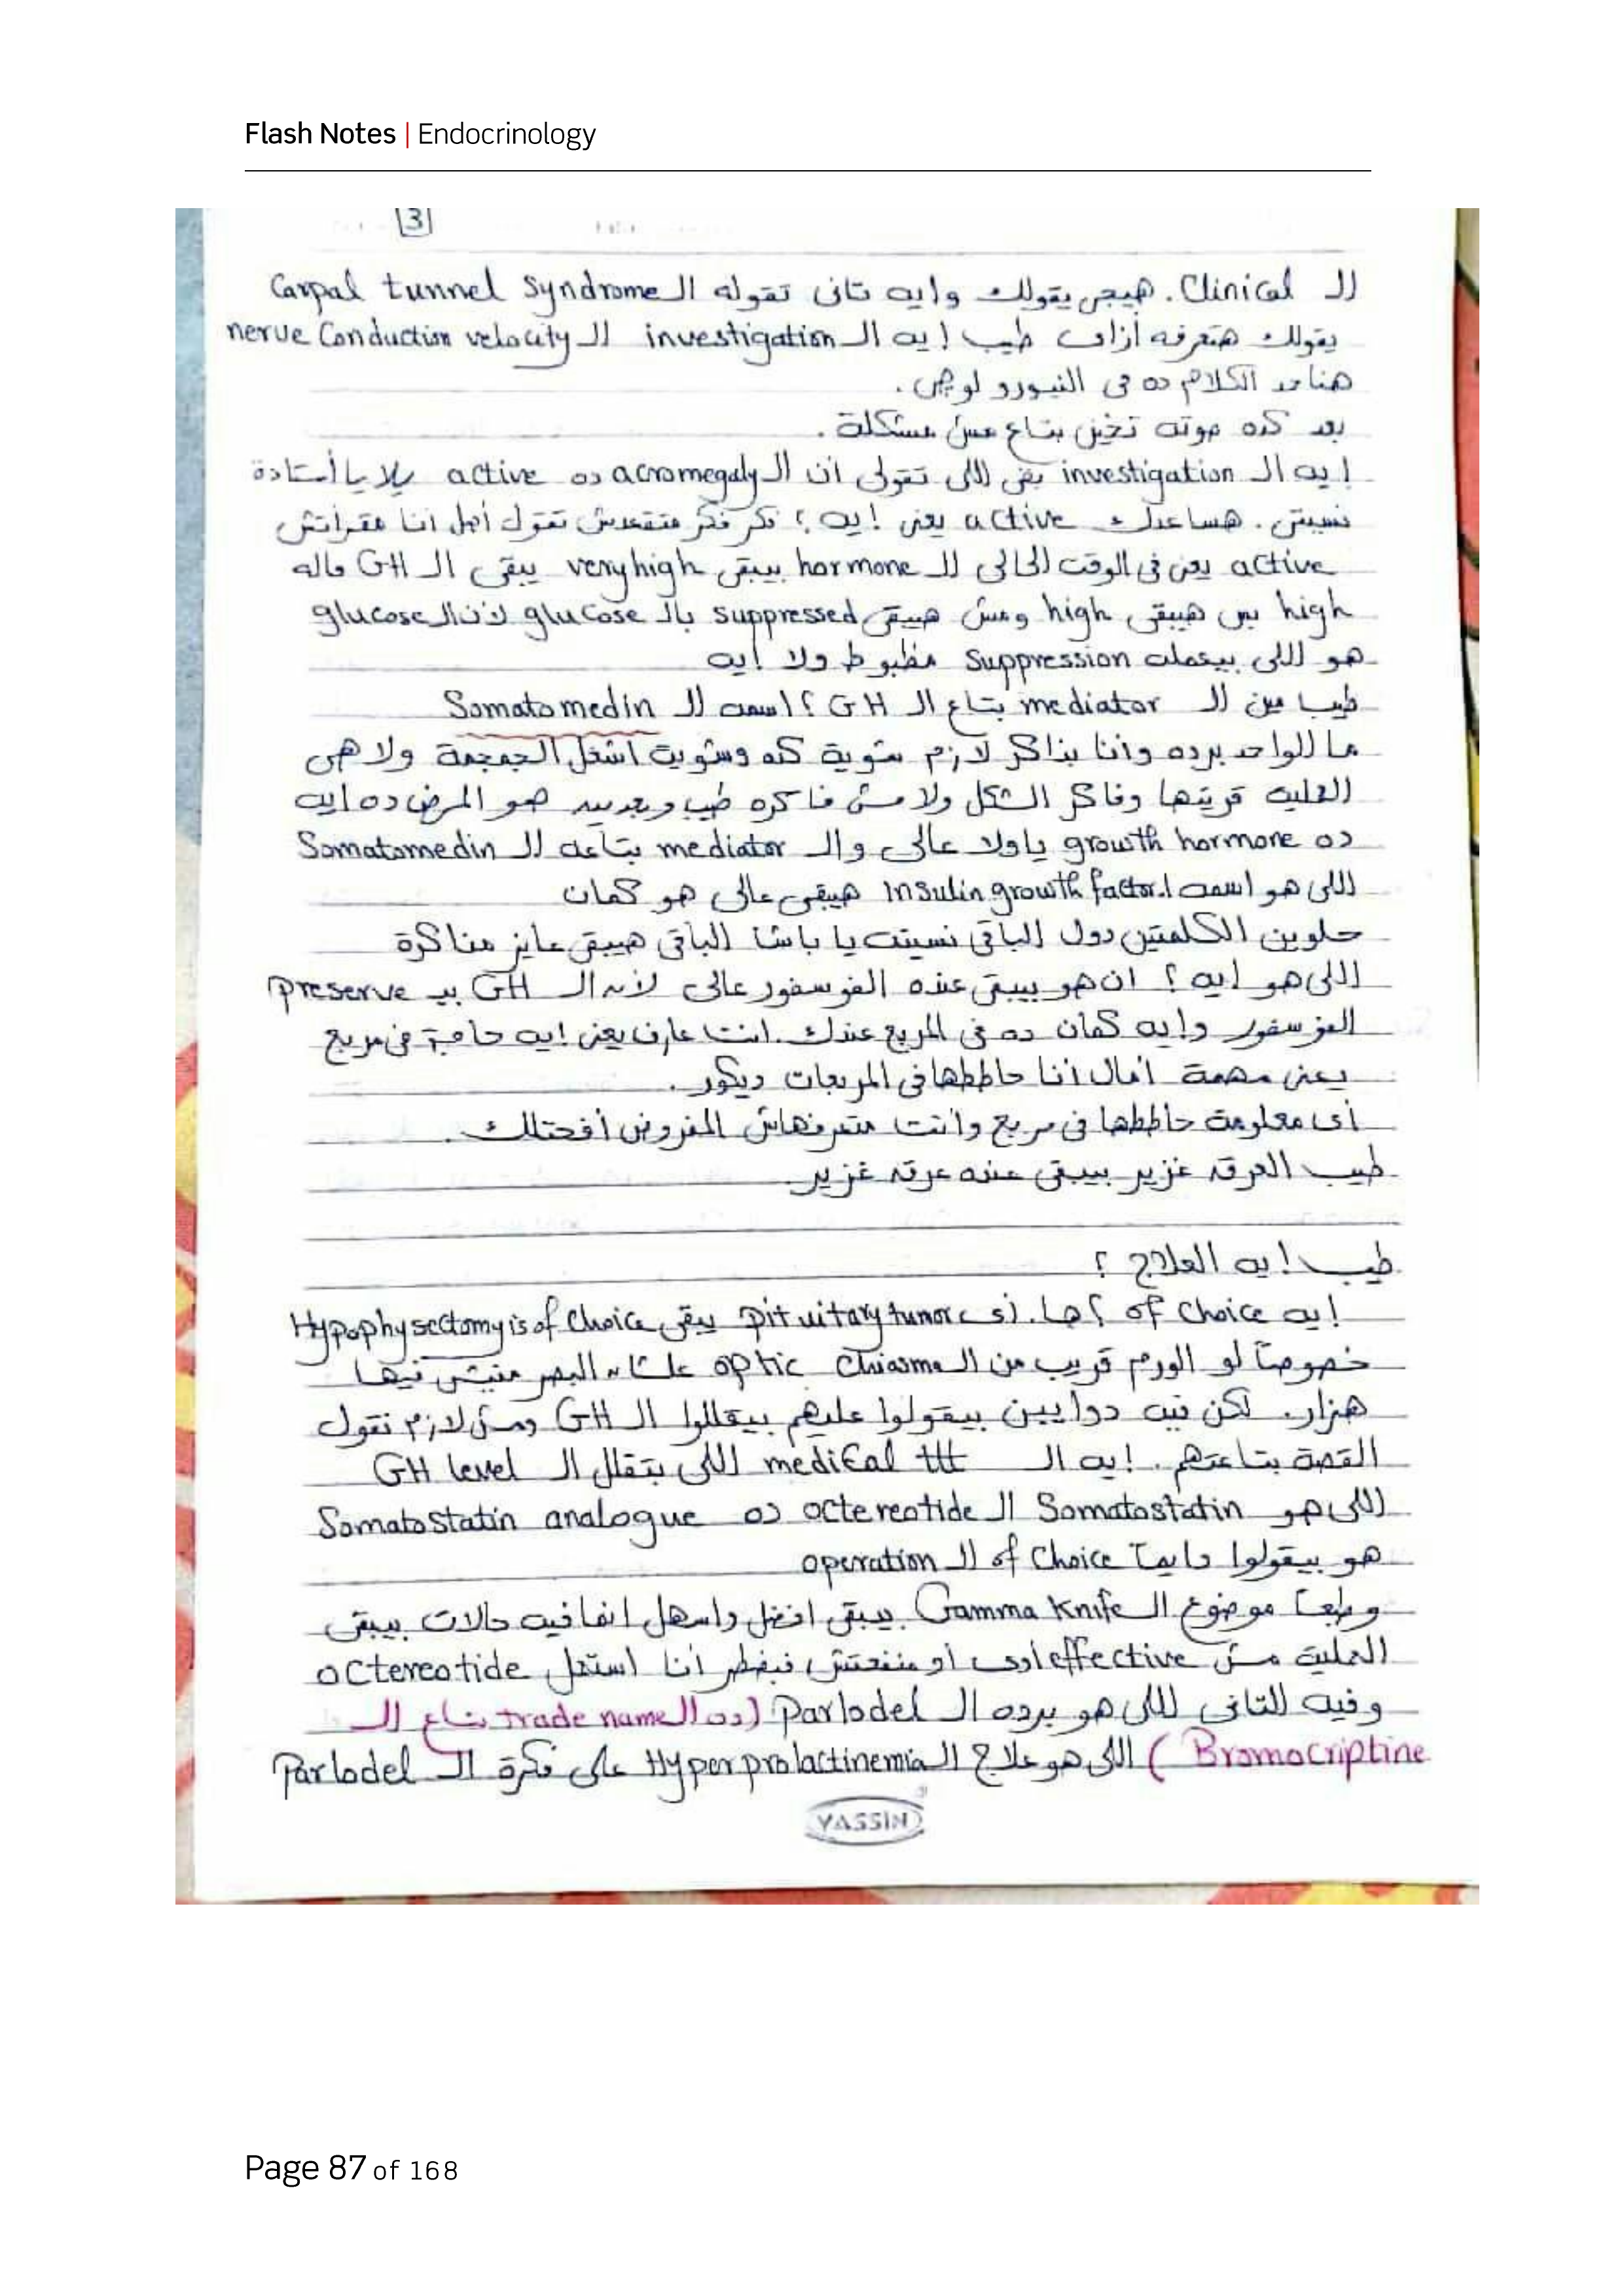 Flash Notes | Endocrinology
3
الـ Clinical. هييجى يقولك وايه تانى تقوله الـ Carpal tunnel Syndrome
يقولك هتعرفه أزاى طيب إيه الـ investigation الـ nerve Conduction velocity
هناخد الكلام ده فى النيورولوجى.
بعد كده صوته تخين بتاع مش مشكلة.
إيه الـ investigation بقى اللى تقولى ان الـ acromegaly ده active يلا يا أستاذة
نسيتى. هساعدك active يعنى إيه؟ فكر فكر متقعدش تقول أصل انا مقرأتش
active يعنى فى الوقت الحالى الـ hormone بيبقى very high يبقى الـ GH ماله
high بس هيبقى high ومش هيبقى suppressed بالـ glucose لأن الـ glucose
هو اللى بيعمله suppression مظبوط ولا ايه
طيب مين الـ mediator بتاع الـ GH؟ اسمه الـ Somatomedin
ما للواحد برده وانا بذاكر لازم شوية كده وشويت اشغل الجمجمة ولا هى
العليه قريتها وفاكر الشكل ولا مش فاكره طيب وبعدين هو المرض ده ايه
ده growth hormone ياولا عالى والـ mediator بتاعه الـ Somatomedin
اللى هو اسمه Insulin growth factor.1 هيبقى عالى هو كمان
حلوين الكلمتين دول الباقى نسيته يا باشا الباقى هيبقى عايز مذاكرة
اللى هو ايه؟ ان هو بيبقى عنده الفوسفور عالى لأن الـ GH بيـ preserve
الفوسفور وايه كمان ده فى المربع عندك. انت عارف يعنى ايه حاجة فى مربع
يعنى مهمة أمال انا حاططها فى المربعات ديكور.
أى معلومة حاططها فى مربع وانت متعرفهاش المفروض أفحتلك.
طيب العرق غزير بيبقى عنده عرق غزير
طيب إيه العلاج؟
إيه of choice؟ ها. زى pituitary tumor يبقى Hypophysectomy is of Choice
خصوصاً لو الورم قريب من الـ optic Chiasma علشان البصر مفيش فيها
هزار. لكن فيه دوايين بيقولوا عليهم بيقللوا الـ GH ومش لازم نقول
القصة بتاعتهم. إيه الـ medical ttt اللى بتقلل الـ GH level
اللى هو Somatostatin الـ octereotide ده Somatostatin analogue
هو بيقولوا دايماً of Choice الـ operation
وطبعاً موضوع الـ Gamma Knife بيبقى افضل واسهل انما فيه حالات بيبقى
العملية مش effective اوى او منفعتش فبضطر أنا استعمل octereotide
وفيه التانى اللى هو برده الـ Parlodel (ده الـ trade name بتاع الـ
Bromocriptine) اللى هو علاج الـ Hyperprolactinemia على فكرة الـ Parlodel
YASSIN
Page 87 of 168